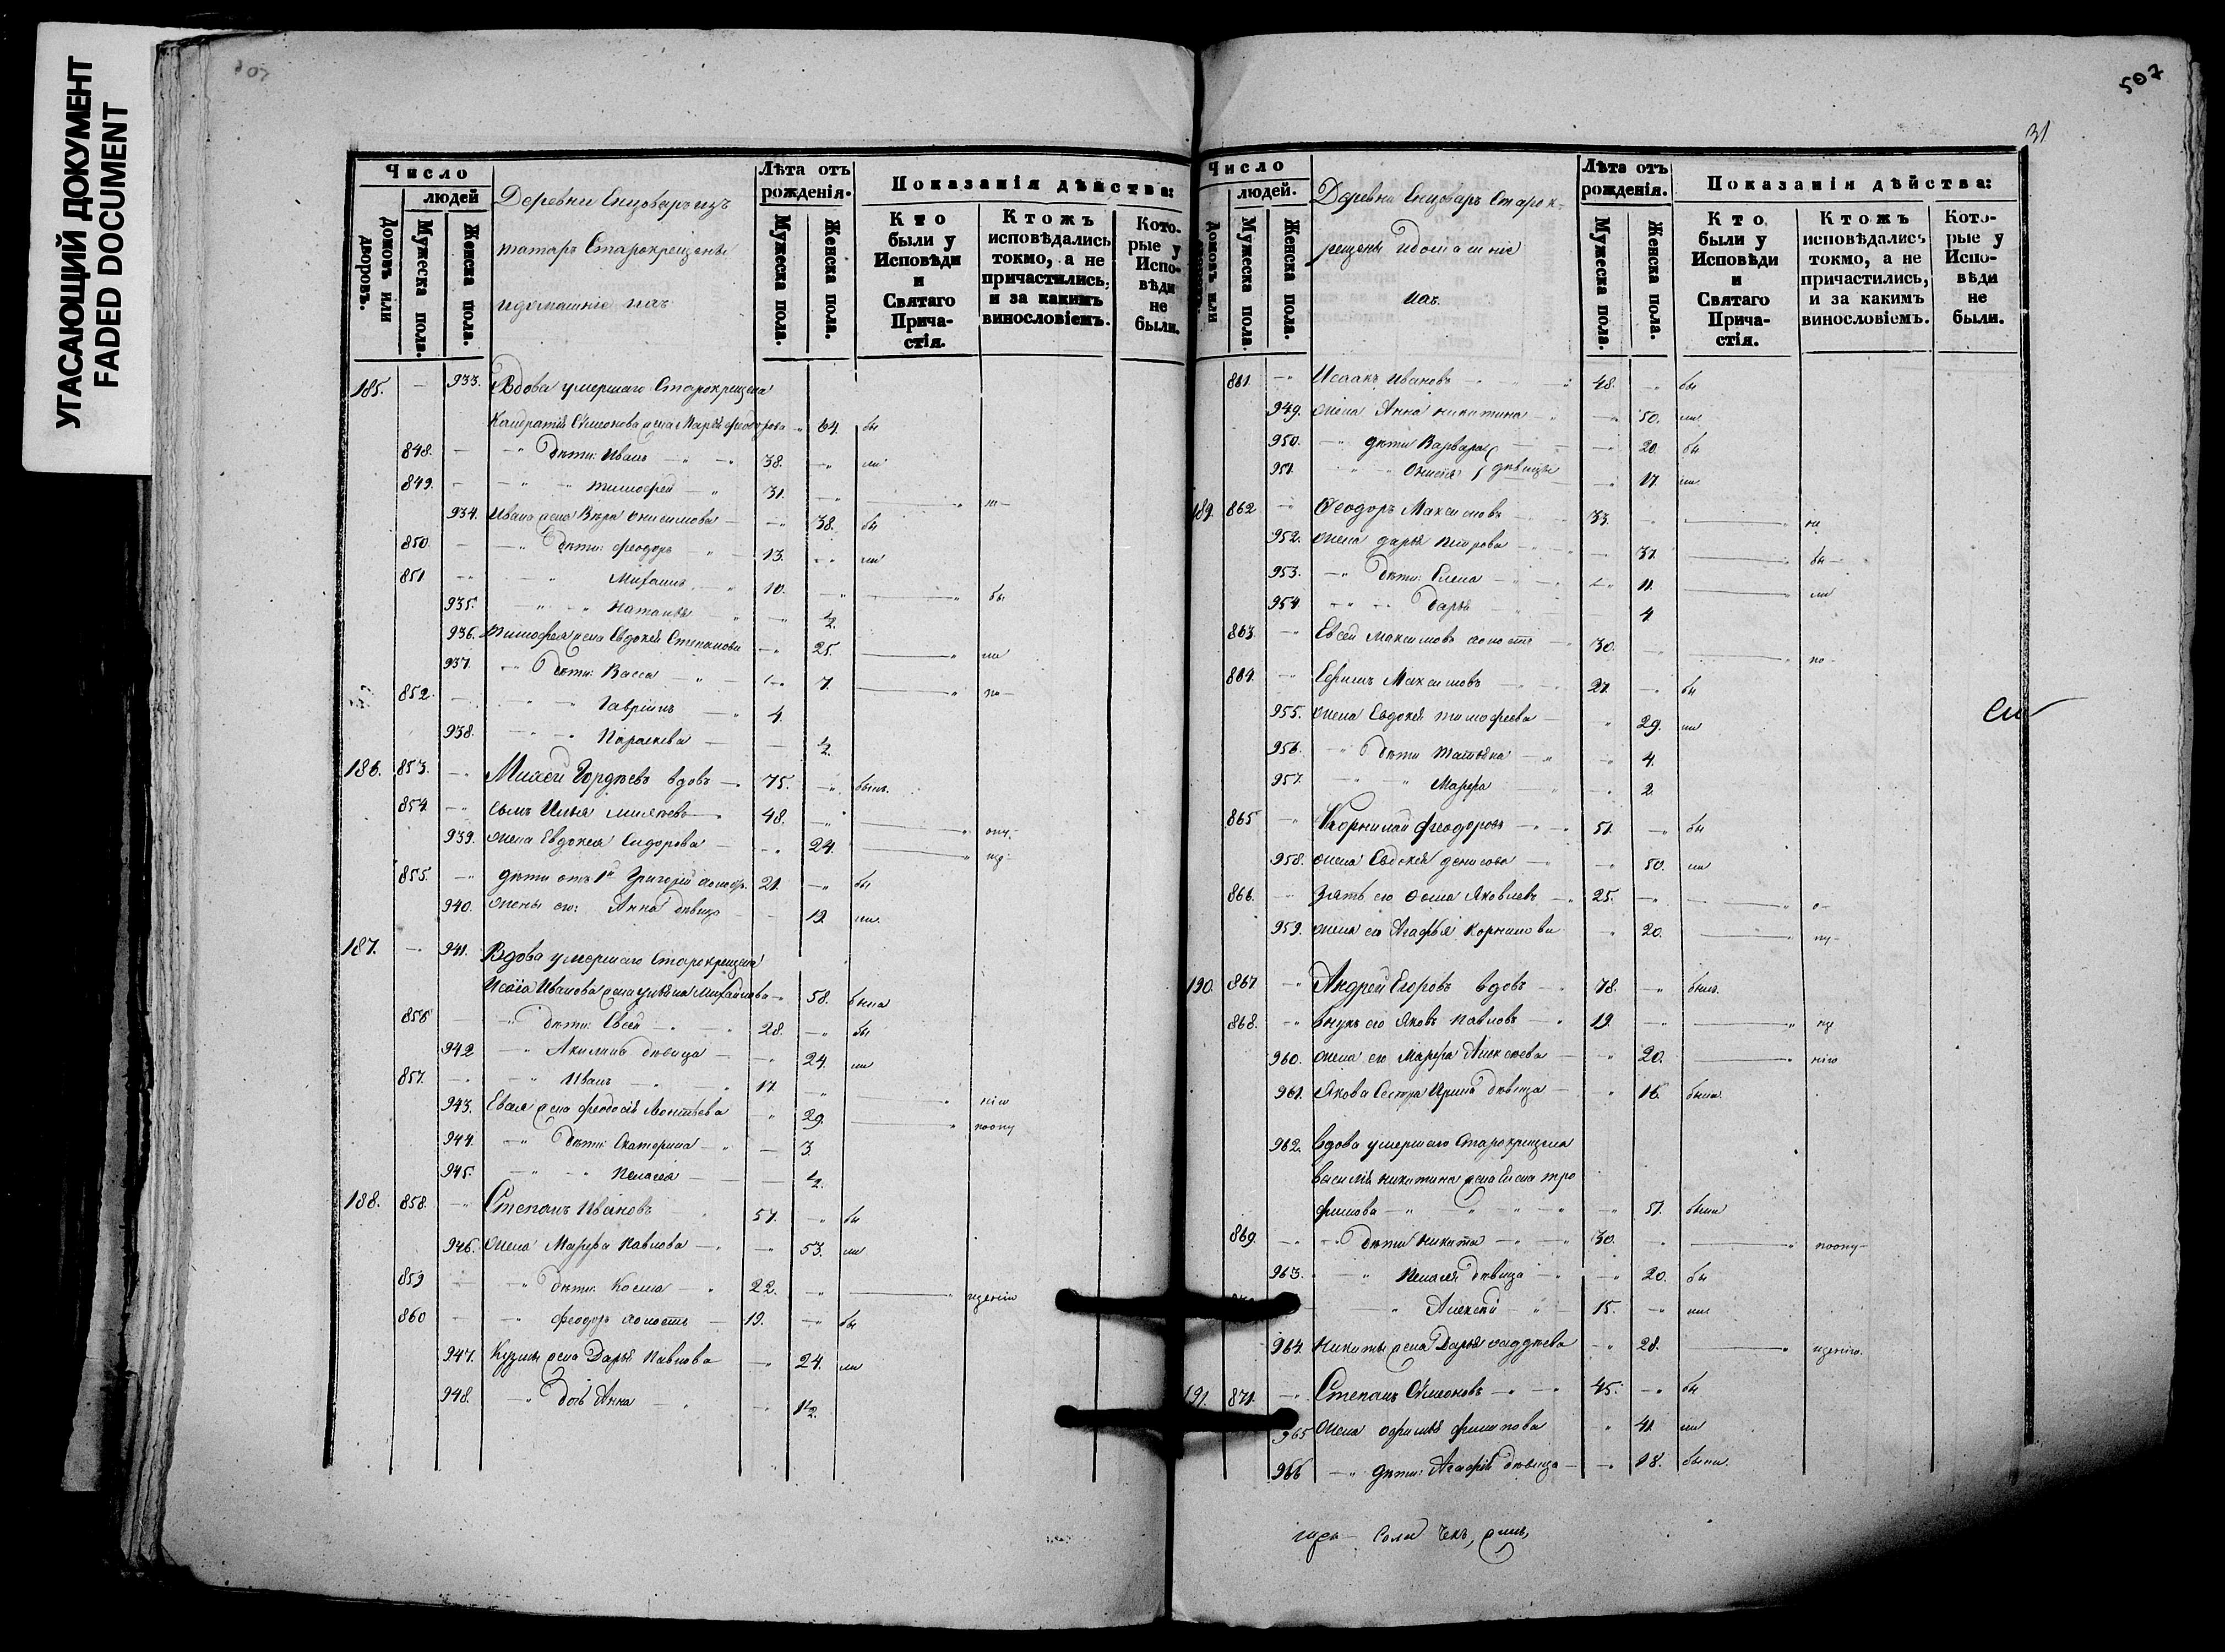 УГАСАЮЩИЙ ДОКУМЕНТ
FADED DOCUMENT
Число
людей
Домовъ или дворовъ.
Мужеска пола.
Женска пола.
Деревни Енцоваръ изъ
татаръ Старокрещены
идомашніе ихъ
Лѣта отъ рожденія.
Мужеска пола.
Женска пола.
Показанія дѣйства:
Кто были у Исповѣди и Святаго Причастія.
Ктожъ исповѣдались токмо, а не причастились, и за какимъ винословіемъ.
Которые у Исповѣди не были.
185. — 933. Вдова умершаго Старокрещена
Кондратія Симеонова жена Марья Феодорова 64. бы
848. — дѣти: Иванъ 38. ли
849. — Тимофей 31.
934. Ивана жена Вѣра Онисимова 38. бы
850. — дѣти: Феодоръ 13. ли
851 Михаилъ 10. бы
935. Наталья ½
936. Тимофея жена Евдокія Степанова 25. ли
937. дѣти: Васса 7. по—
852. Гавріилъ 4.
938. Параскева ½
186. 853. Михей Гордѣевъ вдовъ 75. былъ.
854. сынъ Илья Михѣевъ 48. опу
939. жена Евдокея Сидорова 24.
855. дѣти отъ 1й Григорій холост. 21. бы
940. жены его: Анна дѣвица 19. ли
187. — 941. Вдова умершаго Старокрещена
Исаіа Иванова жена Ульяна Михайлова 58. была
856 дѣти: Евсей 28. бы
942 Акилина дѣвица 24. ли
857. Иванъ 17. нію
943. Евсея жена Феодосія Леонтьева 29. поопу
944. дѣти: Екатерина 3.
945. Пелагея ½.
188. 858. Степанъ Ивановъ 57. бы
946. жена Марфа Павлова 53. ли
859 дѣти: Косма 22. щенію
860 Феодоръ холостъ 19. бы
947. Кузмы жена Дарья Павлова 24. ли
948. дочь Анна 1½.
507
31
Число
людей.
Домовъ или
Мужеска пола.
Женска пола.
Деревни Енцоваръ Старок-
рещены идомашніе
ихъ.
Лѣта отъ рожденія.
Мужеска пола.
Женска пола.
Показанія дѣйства:
Кто были у Исповѣди и Святаго Причастія.
Ктожъ исповѣдались токмо, а не причастились, и за какимъ винословіемъ.
Которые у Исповѣди не были.
861. Исаакъ Ивановъ 48. бы
949. жена Анна Никитина 50. ли
950. дѣти Варвара 20. бы
951. дѣвицы 17. ли
189. 862 Феодоръ Максимовъ 33.
952. жена Дарья Петрова 37. бы—
953. дѣти: Елена 11. ли
954. Дарья 4
863. Евсей Максимовъ холостъ 30. по—
864. Ефимъ Максимовъ 27. бы
955. жена Евдокія Тимофеева 29. ли
956. дѣти Татьяна 4.
957. Марфа 2.
865 Корнилай Феодоровъ 51. бы
958. жена Евдокея Денисова 50. ли
866. Зять его Фома Яковлевъ 25. о—
959. жена его Агафья Корнилова 20. пу—
190. 867 Андрей Егоровъ вдовъ 78. былъ.
868. внукъ его Яковъ Павловъ 19. ще
960. жена его Марфа Алексеева 20. нію
961. Якова Сестра Ирина дѣвица 16. была.
962. Вдова умершаго Старокрещена
Василья Никитина жена Елена Тро
фимова 51. была
869. дѣти Никита 30. поопу—
963. Пелагея дѣвица 20. бы
Алексѣй 15. ли
964. Никиты жена Дарья Фаддѣева 28. щенію.
191. 871. Степанъ Симеоновъ 45. бы
965 жена Офимья Филипова 41 ли
966 дѣти: Агафья дѣвица 18. была.